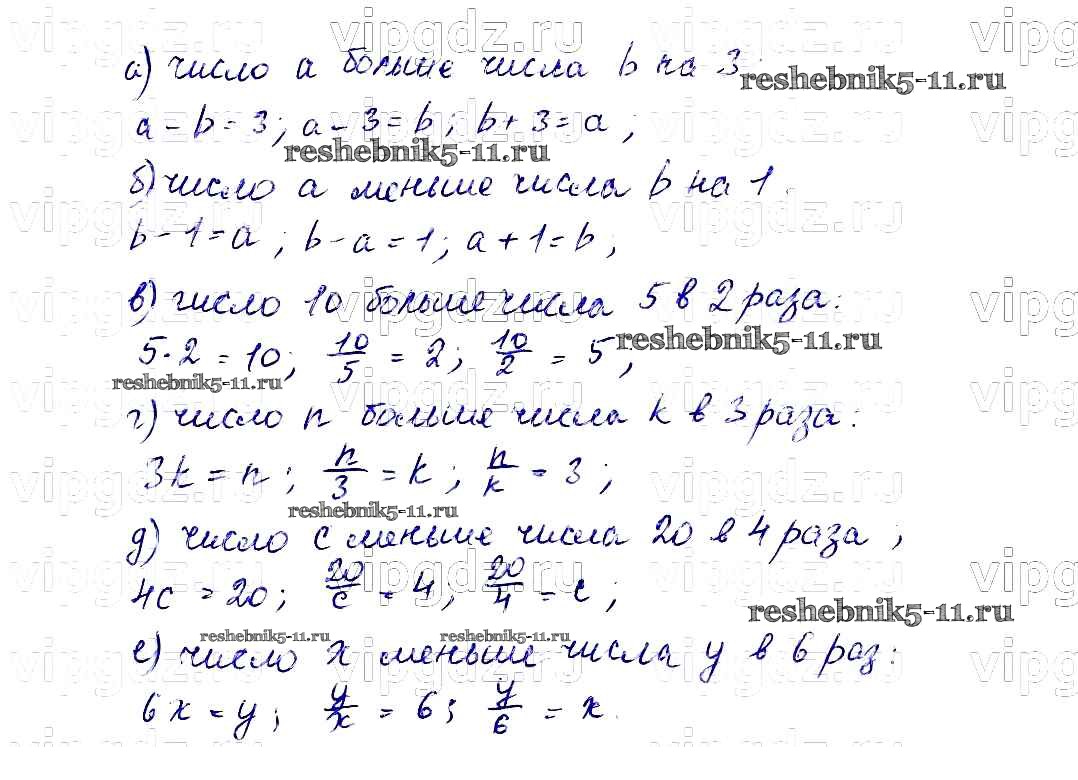 а) число a больше числа b на 3:
a - b = 3; a - 3 = b; b + 3 = a;
б) число a меньше числа b на 1.
b - 1 = a; b - a = 1; a + 1 = b;
в) число 10 больше числа 5 в 2 раза:
5 · 2 = 10; 10/5 = 2; 10/2 = 5;
г) число n больше числа k в 3 раза:
3k = n; n/3 = k; n/k = 3;
д) число c меньше числа 20 в 4 раза;
4c = 20; 20/c = 4; 20/4 = c;
е) число x меньше числа y в 6 раз:
6x = y; y/x = 6; y/6 = x.
vipgdz.ru
reshebnik5-11.ru